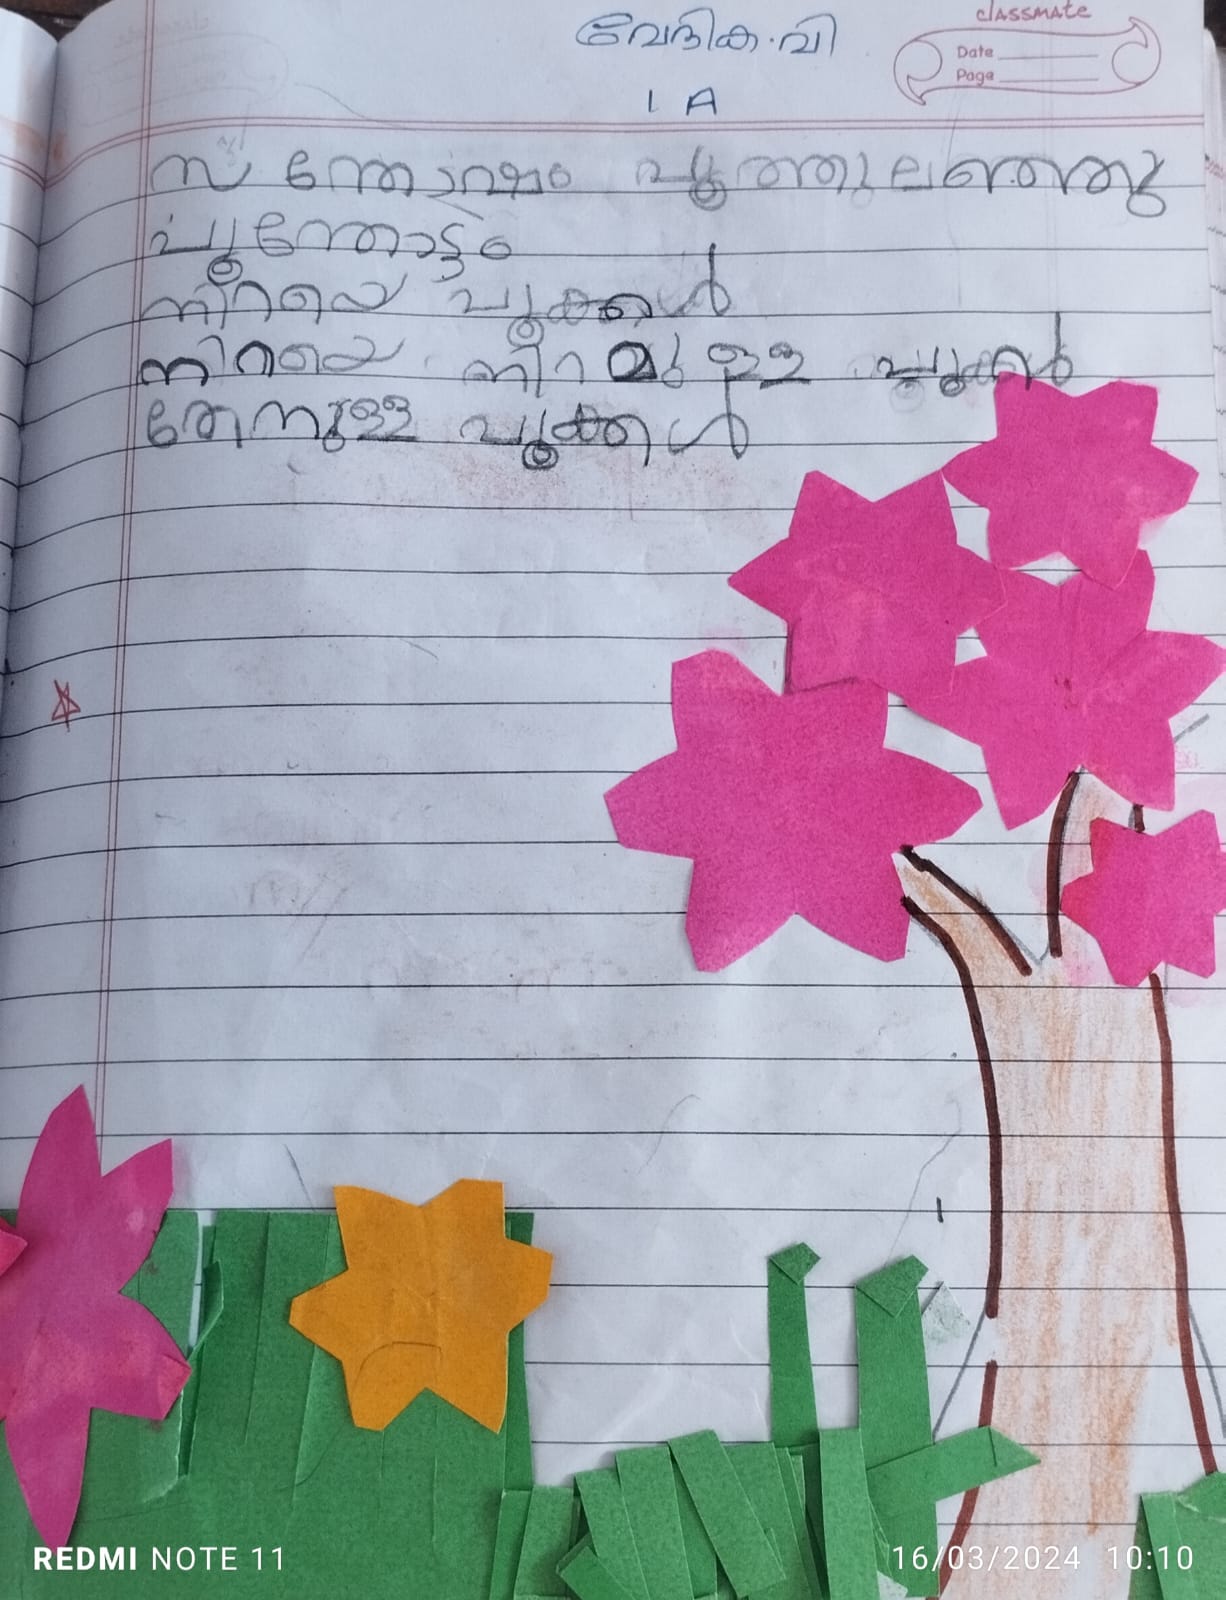 classmate
Date
Page
വേദിക.വി
1 A
സന്തോഷം പൂത്തുലഞ്ഞു
പൂന്തോട്ടം
നിറയെ പൂക്കൾ
നിറയെ നിറമുള്ള പൂക്കൾ
തേനുള്ള പൂക്കൾ
REDMI NOTE 11
16/03/2024 10:10